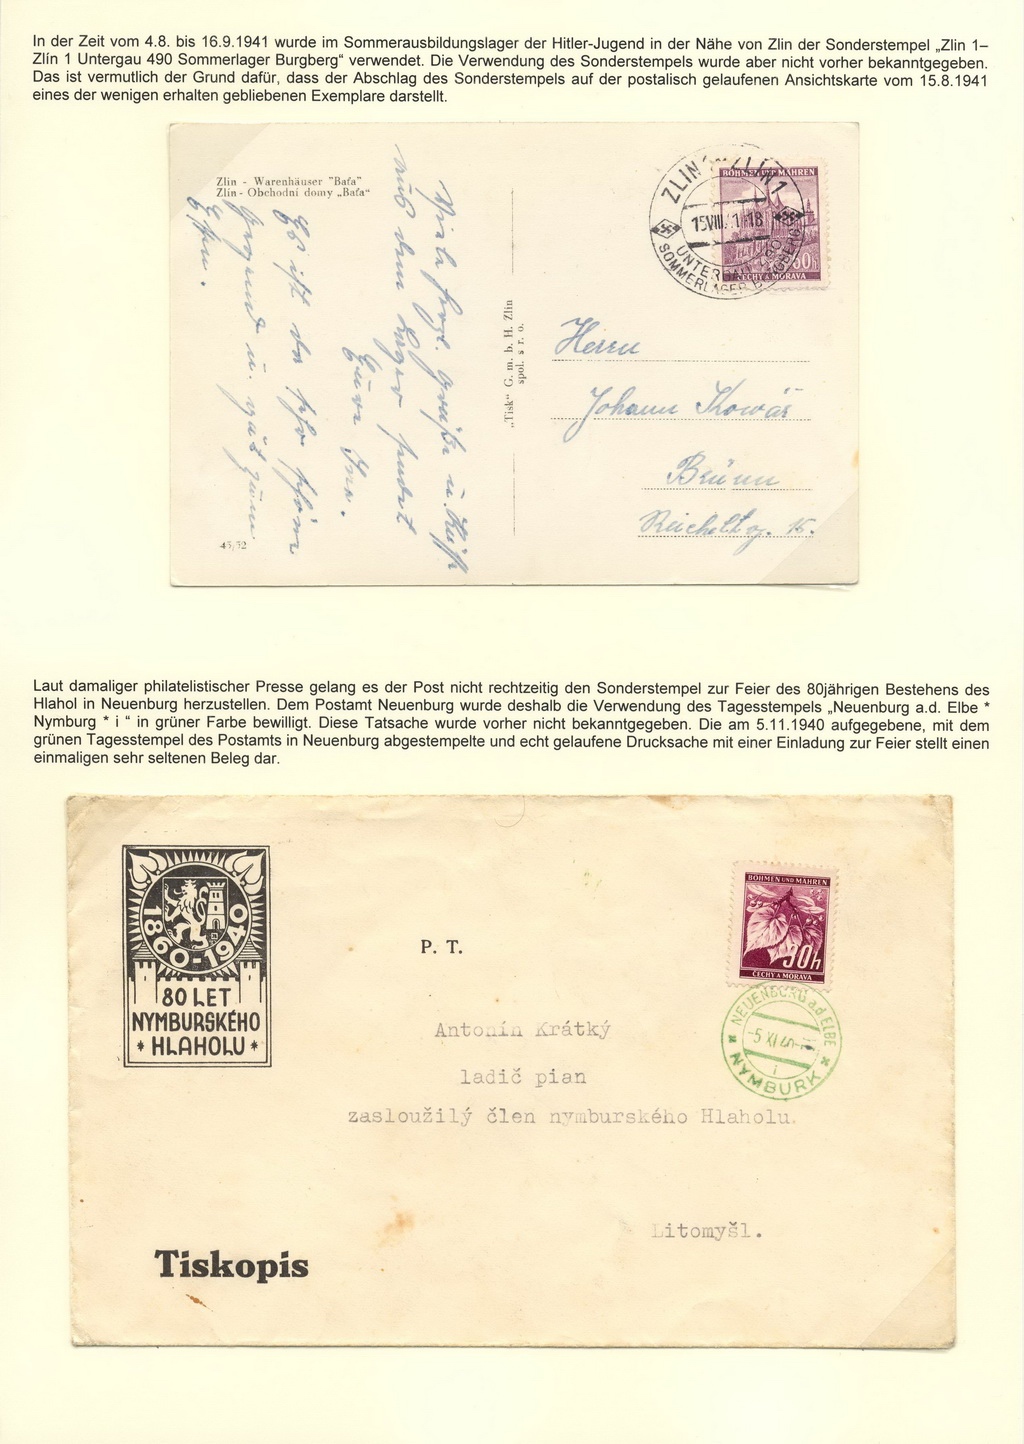 In der Zeit vom 4.8. bis 16.9.1941 wurde im Sommerausbildungslager der Hitler-Jugend in der Nähe von Zlin der Sonderstempel „Zlin 1–
Zlín 1 Untergau 490 Sommerlager Burgberg“ verwendet. Die Verwendung des Sonderstempels wurde aber nicht vorher bekanntgegeben.
Das ist vermutlich der Grund dafür, dass der Abschlag des Sonderstempels auf der postalisch gelaufenen Ansichtskarte vom 15.8.1941
eines der wenigen erhalten gebliebenen Exemplare darstellt.
Zlin - Warenhäuser "Baťa"
Zlín - Obchodní domy „Baťa“
Viele herzl. Grüße u. Küsse
aus dem Lager sendet
Eure
Es ist da sehr schön
Gegend u. gut zum
Essen.
45/52
„Tisk“ G. m. b. H. Zlin
spol. s r. o.
ZLIN 1 ZLÍN 1
15VIII 41-18
UNTERGAU 490
SOMMERLAGER BURGBERG
BÖHMEN UND MÄHREN
60h
ČECHY A MORAVA
Herrn
Johann Kowář
Brünn
15.
Laut damaliger philatelistischer Presse gelang es der Post nicht rechtzeitig den Sonderstempel zur Feier des 80jährigen Bestehens des
Hlahol in Neuenburg herzustellen. Dem Postamt Neuenburg wurde deshalb die Verwendung des Tagesstempels „Neuenburg a.d. Elbe *
Nymburg * i “ in grüner Farbe bewilligt. Diese Tatsache wurde vorher nicht bekanntgegeben. Die am 5.11.1940 aufgegebene, mit dem
grünen Tagesstempel des Postamts in Neuenburg abgestempelte und echt gelaufene Drucksache mit einer Einladung zur Feier stellt einen
einmaligen sehr seltenen Beleg dar.
1860-1940
80 LET
NYMBURSKÉHO
* HLAHOLU *
BÖHMEN UND MÄHREN
30h
ČECHY A MORAVA
NEUENBURG a.d. ELBE
-5 XI 40
i
* NYMBURK *
P. T.
Antonín Krátký
ladič pian
zasloužilý člen nymburského Hlaholu.
Litomyšl.
Tiskopis